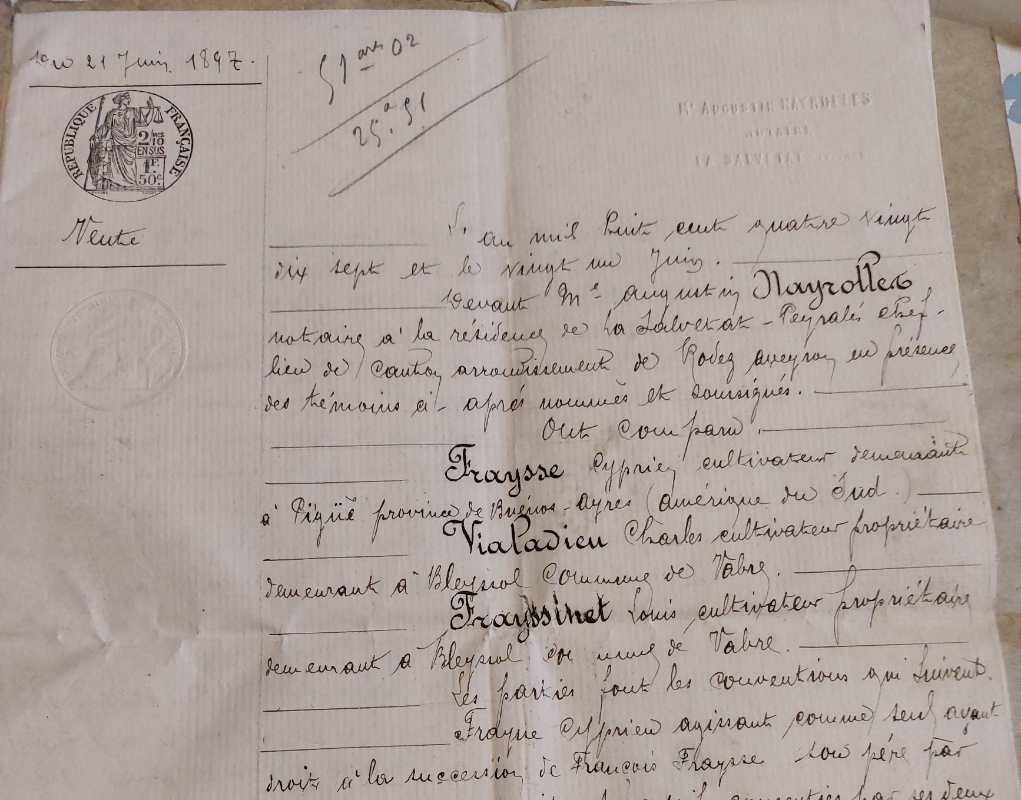 21 Juin 1897.
51 ares 02
25.a 51
RÉPUBLIQUE FRANÇAISE
2/10MES
EN SUS
1F.
50c.
Me AUGUSTIN NAYROLLES
NOTAIRE
LA SALVETAT
Vente
L'an mil huit cent quatre vingt
dix sept et le vingt un Juin.
Devant Me augustin Nayrolles
notaire à la résidence de La Salvetat-Peyralés chef-
lieu de canton arrondissement de Rodez aveyron en présence
des témoins ci-après nommés et soussignés.
Ont comparu.
Fraysse Cyprien cultivateur demeurant
à Pigüé province de Buénos-ayres (amérique du Sud.)
Vialadieu Charles cultivateur propriétaire
demeurant à Bleyssol Commune de Vabre.
Frayssinet Louis cultivateur propriétaire
demeurant à Bleyssol de Vabre.
Les parties font les conventions qui suivent.
Fraysse Cyprien agissant comme seul ayant-
droit à la succession de François Fraysse son père par
par ses deux